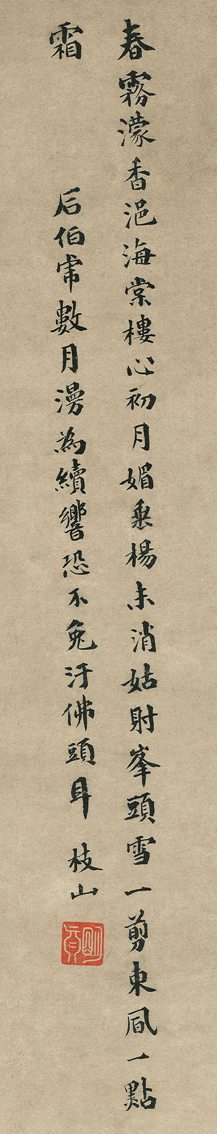 春霧濛香浥海棠樓心初月媚垂楊未消姑射峯頭雪一剪東風一點
霜
后伯虎數月漫為續響恐不免汙佛頭耳 枝山